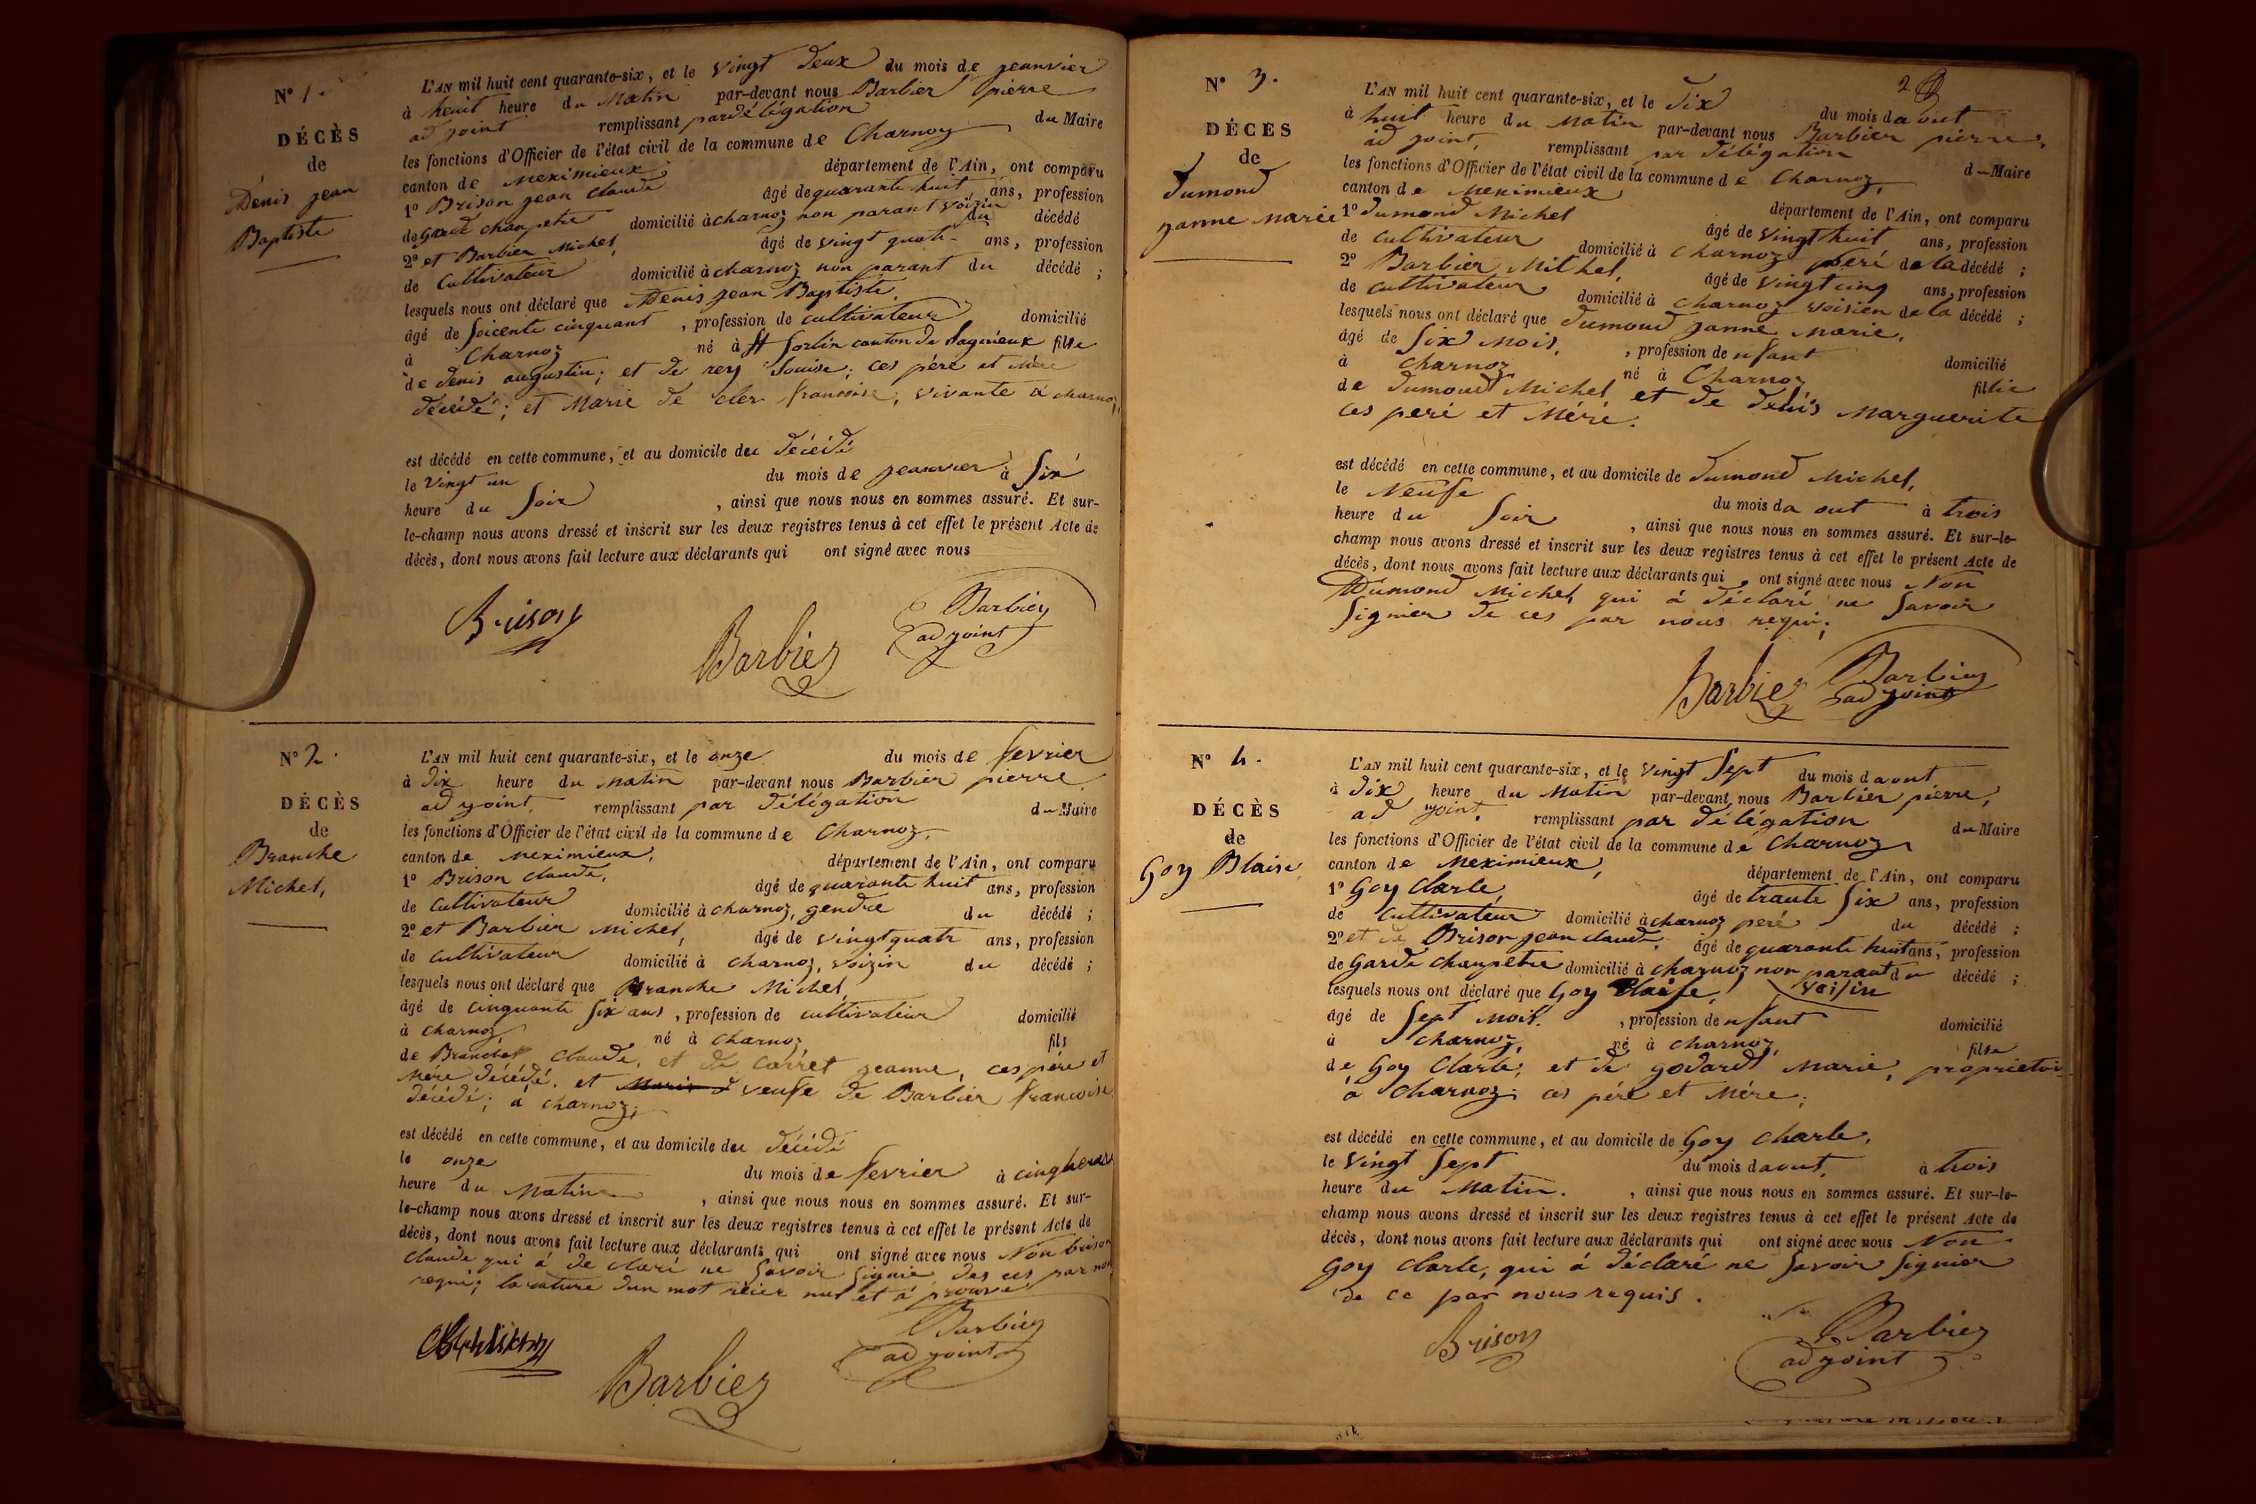 N° 1.
DÉCÈS
de
Denis jean
Baptiste
L'AN mil huit cent quarante-six, et le vingt deux du mois de jeanvier
à heuit heure du Matin par-devant nous Barbier pierre
adjoint remplissant par délégation du Maire
les fonctions d'Officier de l'état civil de la commune de Charnoz
canton de Meximieux département de l'Ain, ont comparu
1° Brison jean claude âgé de quarante huit ans, profession
de Garde champetre domicilié à charnoz non parant voizin du décédé
2° et Barbier Michel, âgé de vingt quatr ans, profession
de Cultivateur domicilié à charnoz non parant du décédé ;
lesquels nous ont déclaré que Denis jean Baptiste,
âgé de soicente cinquant , profession de cultivateur domicilié
à Charnoz né à St Sorlin canton de Lagnieux fils
de denis augustin; et de rey Louise; ces pére et Mére
décédé; et Marie de cler francoise, vivante à charnoz,
est décédé en cette commune, et au domicile du décédé
le vingt un du mois de jeanvier à Six
heure du Soir , ainsi que nous nous en sommes assuré. Et sur-
le-champ nous avons dressé et inscrit sur les deux registres tenus à cet effet le présent Acte de
décès, dont nous avons fait lecture aux déclarants qui ont signé avec nous
Brison
Barbier
Barbier
adjoint
N° 2.
DÉCÈS
de
Branche
Michel,
L'AN mil huit cent quarante-six, et le onze du mois de fevrier
à dix heure du matin par-devant nous Barbier pierre
adjoint, remplissant par délégation du Maire
les fonctions d'Officier de l'état civil de la commune de Charnoz,
canton de Meximieux, département de l'Ain, ont comparu
1° Brison claude, âgé de quarante huit ans, profession
de cultivateur domicilié à charnoz, gendre du décédé ;
2° et Barbier Michel, âgé de vingt quatr ans, profession
de cultivateur domicilié à charnoz, voizin du décédé ;
lesquels nous ont déclaré que Branche Michel
âgé de cinquante Six ans , profession de cultivateur domicilié
à charnoz né à charnoz fils
de Branche Claude, et de Carret jeanne, ces pére et
Mére décédé, et veufe de Barbier francoise
décédé; à charnoz;
est décédé en cette commune, et au domicile du décédé
le onze du mois de fevrier à cinq heures
heure du Matin , ainsi que nous nous en sommes assuré. Et sur-
le-champ nous avons dressé et inscrit sur les deux registres tenus à cet effet le présent Acte de
décès, dont nous avons fait lecture aux déclarants qui ont signé avec nous Non brison
claude qui à de claré ne Savoir Signié des ces par nous
requi; la rature dun mot réier nul et à prouvé
Barbier
Barbier
adjoint
2
N° 3.
DÉCÈS
de
dumond
janne marie
L'AN mil huit cent quarante-six, et le dix du mois d aout
à huit heure du Matin par-devant nous Barbier pierre,
adjoint, remplissant par délégation du Maire
les fonctions d'Officier de l'état civil de la commune de Charnoz,
canton de Meximieux département de l'Ain, ont comparu
1° dumond Michel âgé de vingt huit ans, profession
de cultivateur domicilié à Charnoz peré de la décédé ;
2° Barbier Michel, âgé de vingt cinq ans, profession
de cultivateur domicilié à charnoz voisien de la décédé ;
lesquels nous ont déclaré que dumond janne marie,
âgé de Six Mois, , profession de nfant domicilié
à Charnoz né à Charnoz fillie
de dumond Michel et de denis Marguerite
ces peré et Méré.
est décédé en cette commune, et au domicile de dumond Michel,
le Neufe du mois da out à trois
heure du Soir , ainsi que nous nous en sommes assuré. Et sur-le-
champ nous avons dressé et inscrit sur les deux registres tenus à cet effet le présent Acte de
décès, dont nous avons fait lecture aux déclarants qui ont signé avec nous Non
Dumond Michel qui à déclaré ne Savoir
Signier de ces par nous requi;
Barbier
Barbier
adjoint
N° 4.
DÉCÈS
de
Goy Blaise
L'AN mil huit cent quarante-six, et le vingt Sept du mois d aout
à dix heure du Matin par-devant nous Barbier pierre,
adjoint, remplissant par délégation du Maire
les fonctions d'Officier de l'état civil de la commune de Charnoz
canton de Meximieux, département de l'Ain, ont comparu
1° Goy Clarle âgé de trante Six ans, profession
de Cultivateur domicilié à charnoz peré du décédé ;
2° et de Brison jean claude, âgé de quarante huit ans, profession
de Garde champetre domicilié à charnoz non parant du décédé ;
voisin
lesquels nous ont déclaré que Goy Blaise,
âgé de Sept Mois. , profession de nfant domicilié
à charnoz, né à charnoz, fils
de Goy Clarle, et de godard Marie, proprietoir
à Charnoz; ces pére et Mére;
est décédé en cette commune, et au domicile de Goy Charle,
le Vingt Sept du mois d aout, à trois
heure du Matin. , ainsi que nous nous en sommes assuré. Et sur-le-
champ nous avons dressé et inscrit sur les deux registres tenus à cet effet le présent Acte de
décès, dont nous avons fait lecture aux déclarants qui ont signé avec nous Non
Goy Clarle, qui à déclaré ne Savoir Signier
de ce par nous requis.
Brison
Barbier
adjoint